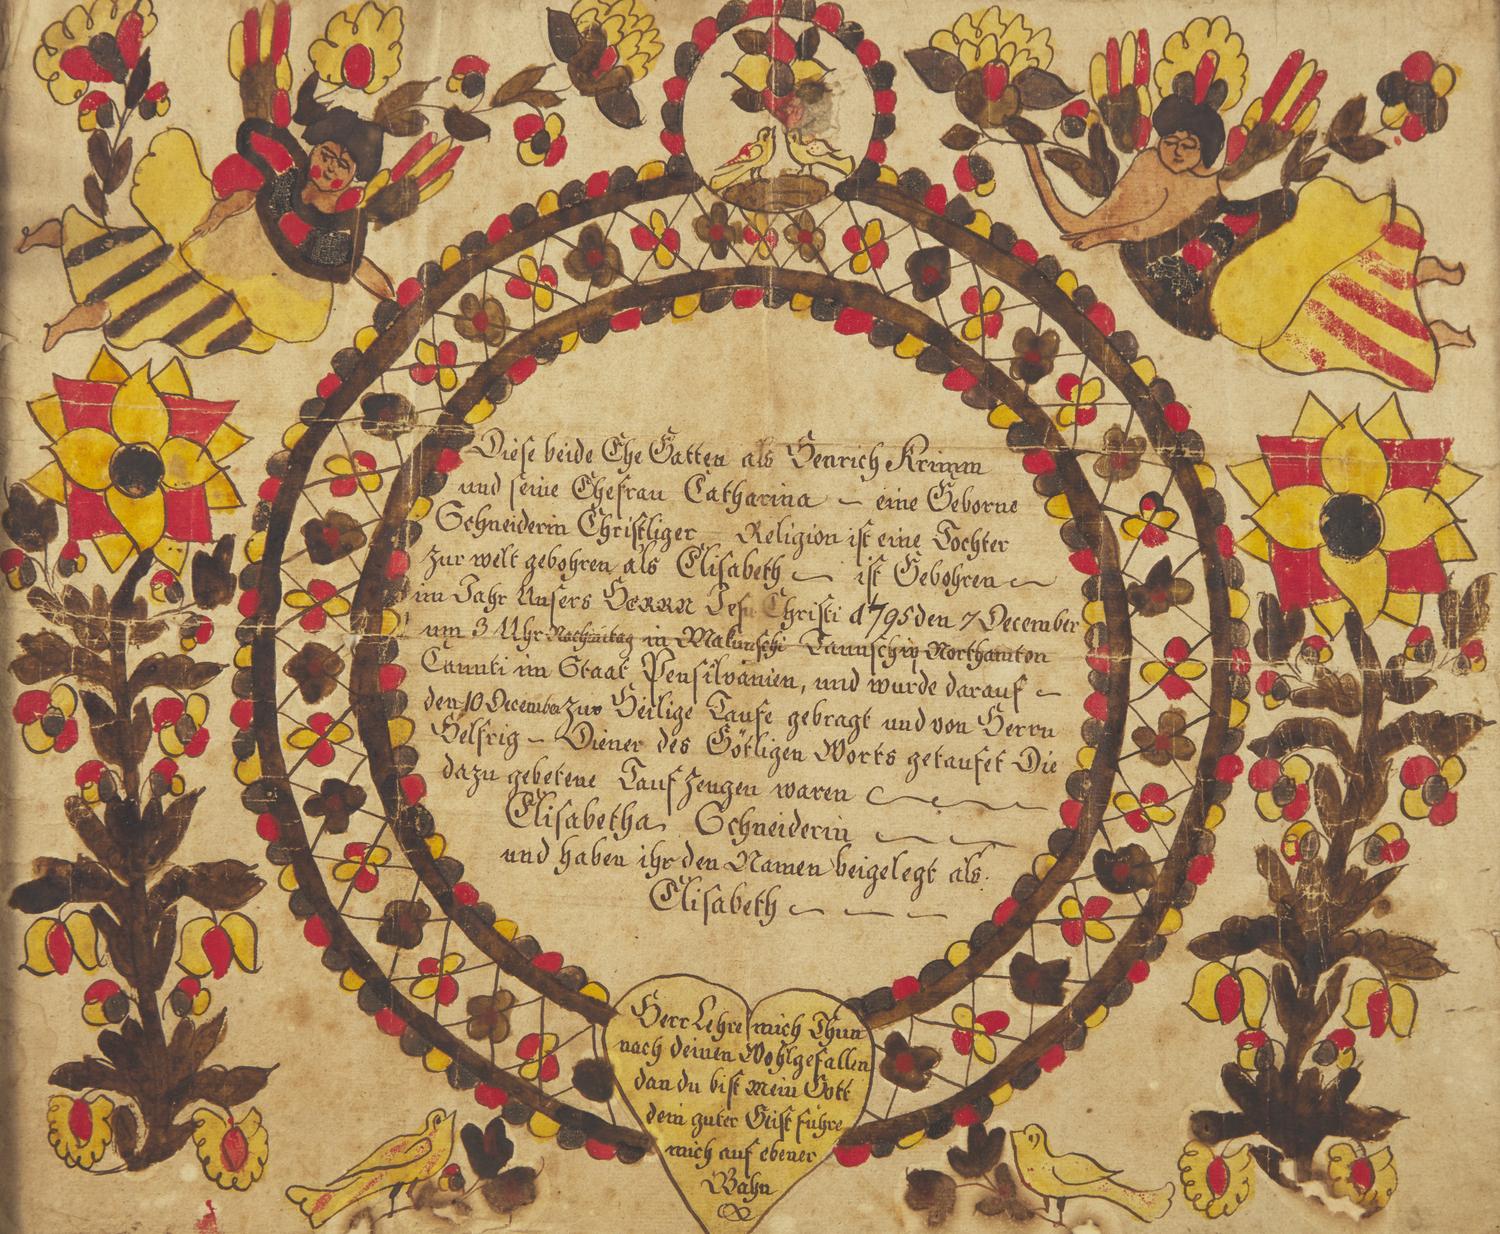 Diese beide Ehe Gatten als Henrich Krimm
und seine Ehefrau Catharina — eine Geborne
Schneiderin Christliger — Religion ist eine Tochter
zur welt gebohren als Elisabeth — ist Gebohren —
im Jahr Unsers HERRN Jesu Christi 1795 den 7 December
um 3 Uhr Nachmitag in Makunschi Taunschip Northamton
Caunti im Staat Pensilvanien, und wurde darauf —
den 10 December zur Heilige Taufe gebragt und von Herrn
Helfrig — Diener des Götligen Worts getaufet Die
dazu gebetene Tauf Zeugen waren
Elisabetha Schneiderin —
und haben ihr den Namen beigelegt als:
Elisabeth — — —
Herr Lehre mich Thun
nach deinen Wohlgefallen
dan du bist mein Gott
dein guter Geist führe
mich auf ebener
Bahn